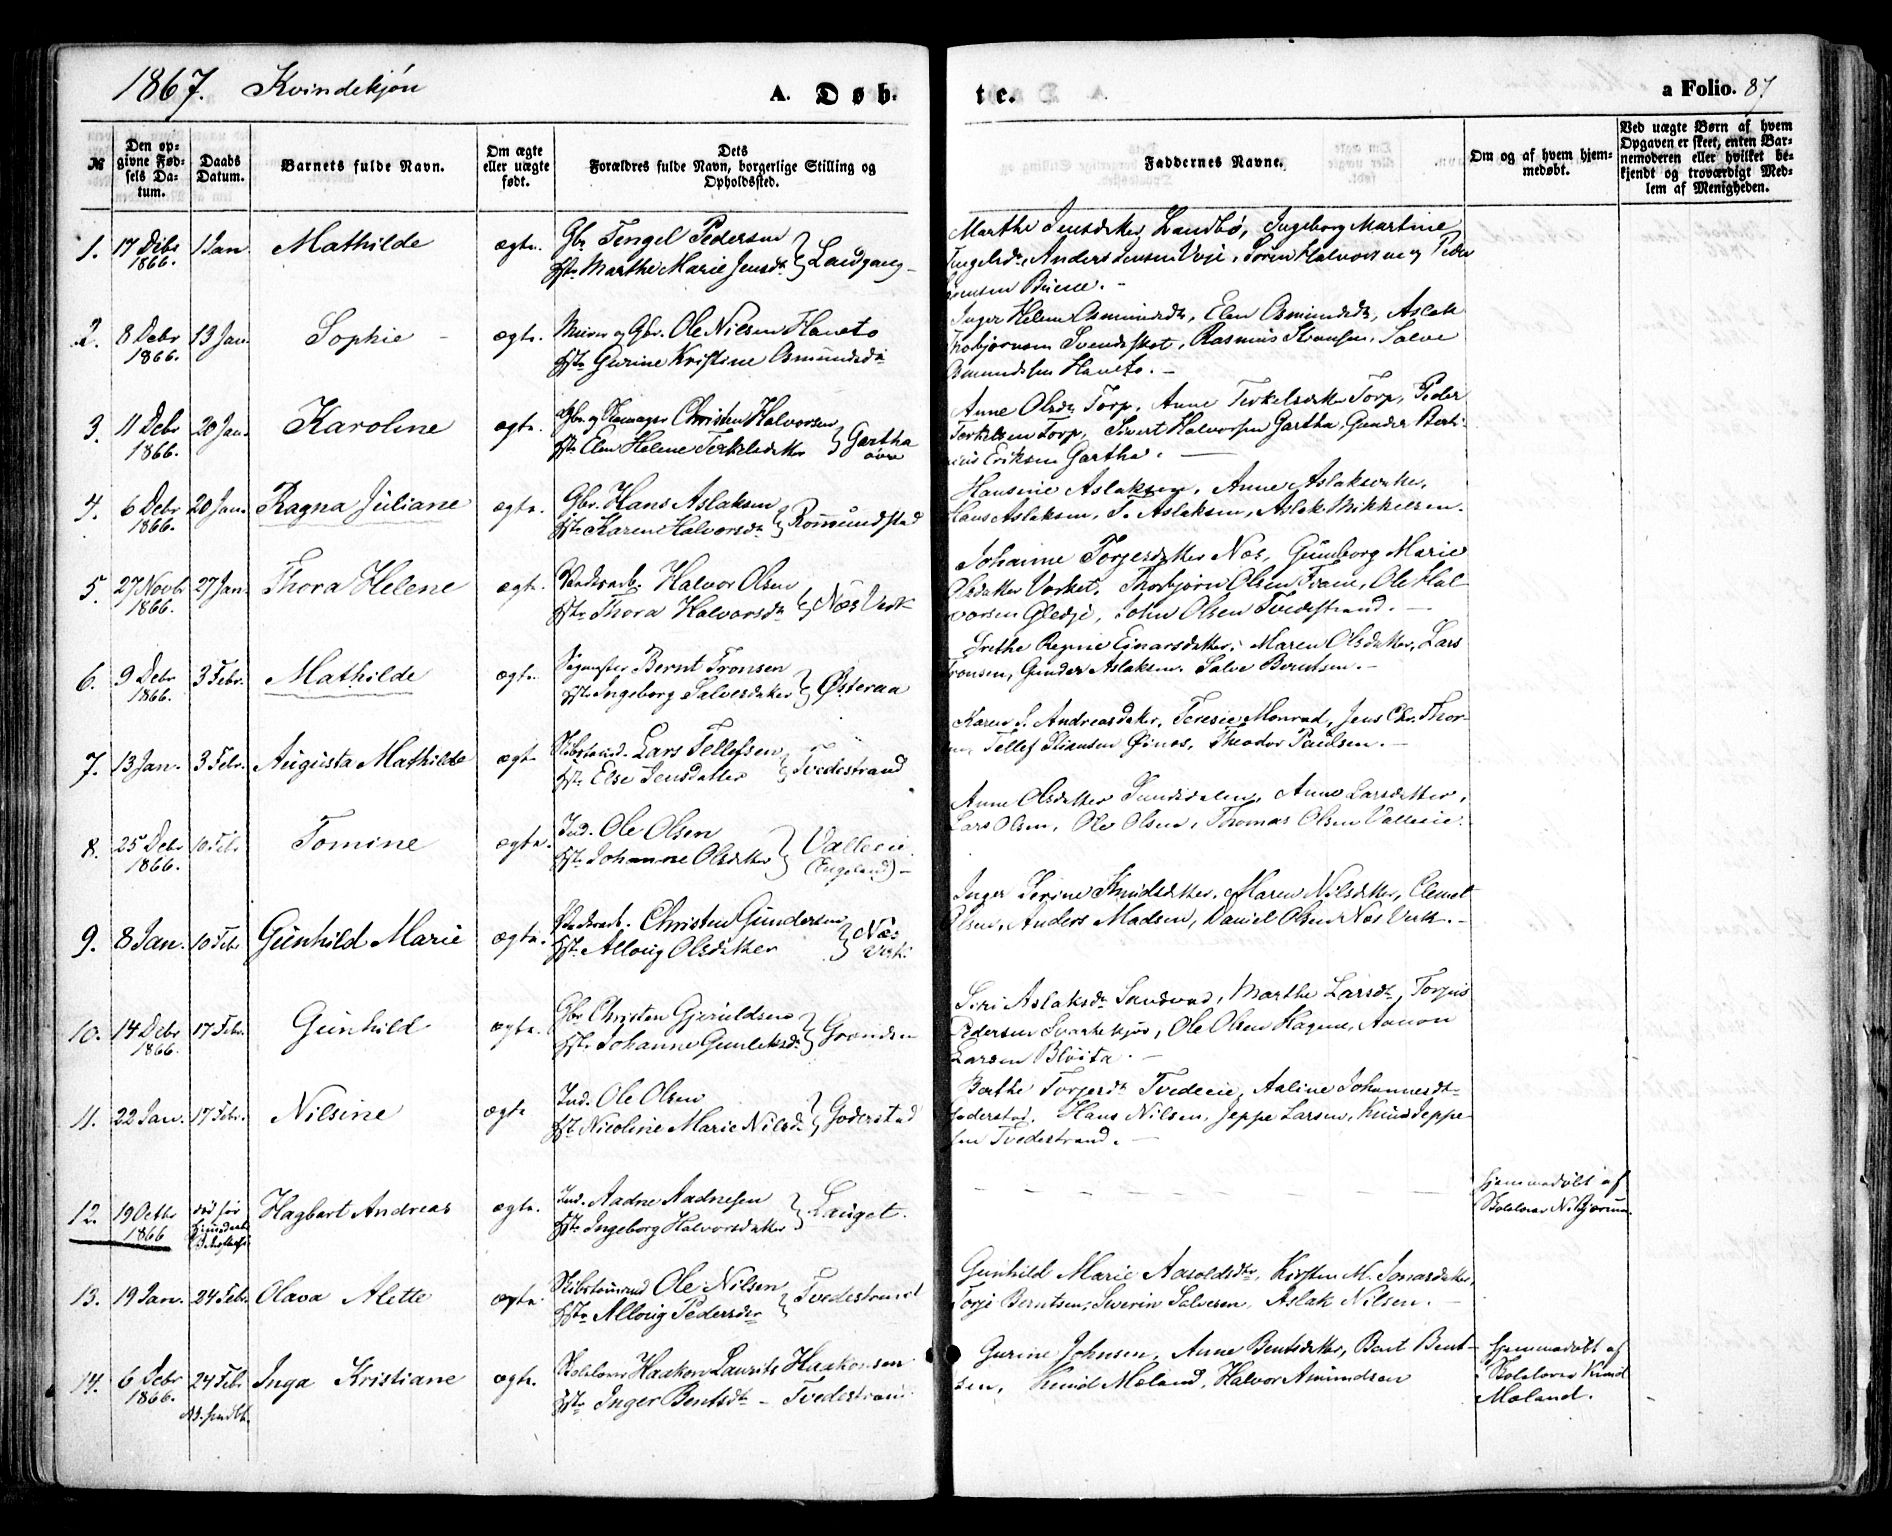 1867. Kvindekjøn
A. Døb-
te.
a Folio. 87
№
Den op-
givne Fød-
sels Da-
tum.
Daabs
Datum.
Barnets fulde Navn.
Om ægte
eller uægte
født.
Dets
Forældres fulde Navn, borgerlige Stilling og
Opholdssted.
Faddernes Navne.
Om og af hvem hjem-
medøbt.
Ved uægte Børn af hvem
Opgaven er skeet, enten Bar-
nemoderen eller hvilket be-
kjendt og troværdigt Med-
lem af Menigheden.
1. 17 Dcbr 1866. 1 Jan. Mathilde ægte.
Gbr Tengel Pedersen
Hst. Marthe Marie Jensdt } Landgang
Marthe Jensdatter Landbø, Ingeborg Martine
Tengelsdt, Anders Jensen, Søren Halvorsen og Peder
Jensen
2. 8 Debr 1866. 13 Jan. Sophie ægte.
Murer og Gbr. Ole Nilsen Haneto
Hst. Gurine Kristine Osmundsdt
Inger Helene Osmundsdt, Elen Osmundsdt, Aslak
Thorbjørnsen, Rasmus, Salve
Osmundsen Haneto.
3. 11 Debr 1866. 20 Jan. Karoline ægte.
Gbr. og Christen Halvorsen
Hst. Elen Helene Terkelsdatter } Gartha øvre
Anne Olsdt Torp, Anne Terkelsdatter Torp, Peder
Terkelsen Torp, Sivert Halvorsen Gartha, Gunder Berti-
nius Eriksen Gartha.
4. 6 Debr 1866. 20 Jan. Ragna Juliane ægte.
Gbr. Hans Aslaksen
Hst. Karen Halvorsdt } Romundstad
Hansine Aslaksen, Anne Aslaksdatter,
Hans Aslaksen, T. Aslaksen, Aslak Mikkelsen.
5. 27 Novbr 1866. 27 Jan. Thora Helene ægte.
Halvor Olsen
Hst. Thora Halvorsdt } Næs Verk
Johanne Torjesdatter Næs, Gunborg Marie
Olsdatter Verket, Thorbjørn Olsen, Ole Hal-
vorsen Gledje, John Olsen Tvedestrand.
6. 9 Debr 1866. 3 Febr. Mathilde ægte.
Bernt Tronsen
Hst. Ingeborg Salvesdatter } Østeraa
Grethe Regine Ejnarsdatter, Maren Olsdatter, Lars
Tronsen, Gunder Aslaksen, Salve Berntsen.
7. 13 Jan. 3 Febr. Augusta Mathilde ægte
Skibstmd. Lars Tellefsen
Hst. Else Jensdatter } Tvedestrand
Karen S. Andreasdatter, Teresie Monrad, Jens Chr. Thor-
Tellef, Theodor Paulsen.
8. 25 Debr 1866. 10 Febr Tomine ægte.
Ind. Ole Olsen
Hst. Johanne Olsdatter } Vallerie (Engeland)
Anne Olsdatter, Anne Larsdatter,
Lars Olsen, Ole Olsen, Thomas Olsen Vallerie.
9. 8 Jan. 10 Febr Gunhild Marie ægte.
Christen Gundersen
Hst. Alloug Olsdatter } Næs Verk.
Inger Serine Knudsdatter, Maren Nilsdatter, Clemet
Olsen, Anders Madsen, Daniel Olsen Næs Verk.
10. 14 Debr 1866. 17 Febr. Gunhild ægte.
Gbr Christen Gjeruldsen
Hst. Johanne Gunleksdt } Grønden
Siri Aslaksdt Sandvad, Marthe Larsdt, Torjus
Pedersen, Ole Olsen Hagene, Aanon
Larsen
11. 22 Jan. 17 Febr. Nilsine ægte
Ind. Ole Olsen
Hst. Nicoline Marie Nilsdt } Goderstad
Berthe Torjersdt, Aaline Johannesdt
Goderstad, Hans Nilsen, Jeppe Larsen, Knud Jeppe-
sen Tvedestrand.
12. 19 Octbr 1866 død før Hagbart Andreas ægte.
Ind. Aadne Aadnesen
Hst. Ingeborg Halvorsdatter } Lauget.
Hjemmedøbt af
Skolelærer N.
13. 19 Jan. 24 Febr. Olava Alette ægte.
Skibstømmrmd Ole Nilsen
Hst. Alloug Pedersdtr } Tvedestrand
Gunhild Marie Aasoldsdtr, Kirsten M. Jonasdatter,
Torje Berntsen, Severin Salvesen, Aslak Nilsen.
14. 6 Debr 1866. 24 Febr Inga Kristiane ægte.
Skolelærer Haakon Laurits Haakonsen
Hst. Inger Bentsdt - Tvedestrand
Gurine Johnsen, Anne Bentsdatter, Bent Bent-
sen, Knud Moland, Halvor Amundsen
Hjemmedøbt af
Skolelærer Knud
Moland.